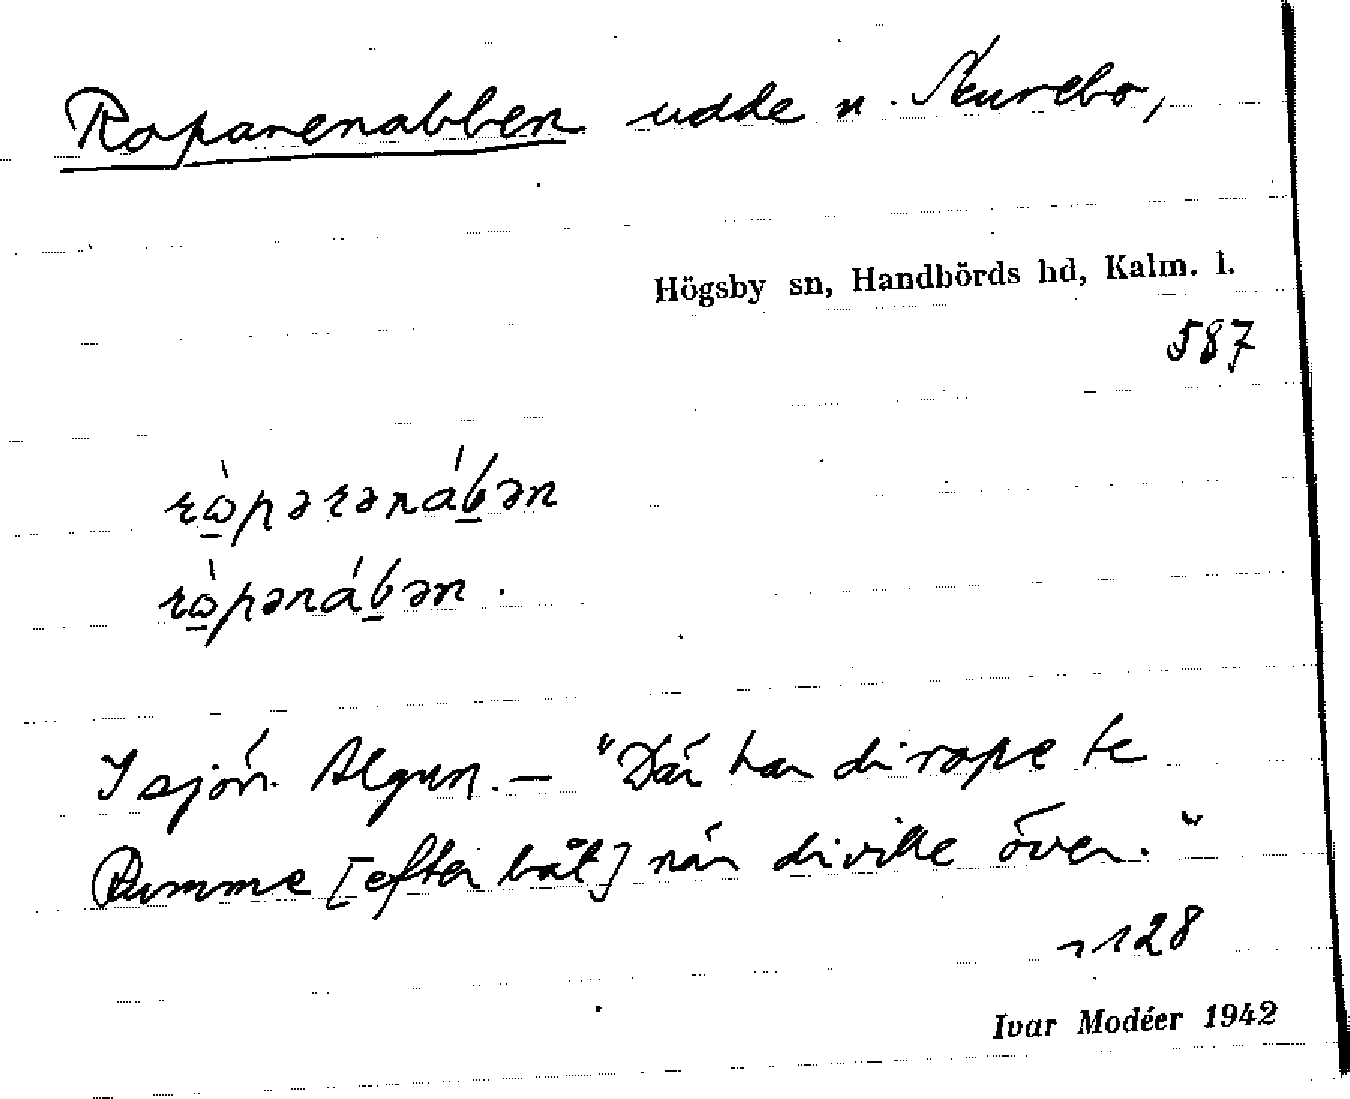 Roparenabben udde n.
Högsby sn, Handbörds hd, Kalm. l.
587
rò̱pərəná̱bən
rò̱pəná̱bən.
I sjön Algun. – "Där har di rope te
Rumme [efter båt] när di ville över."
128
Ivar Modéer 1942